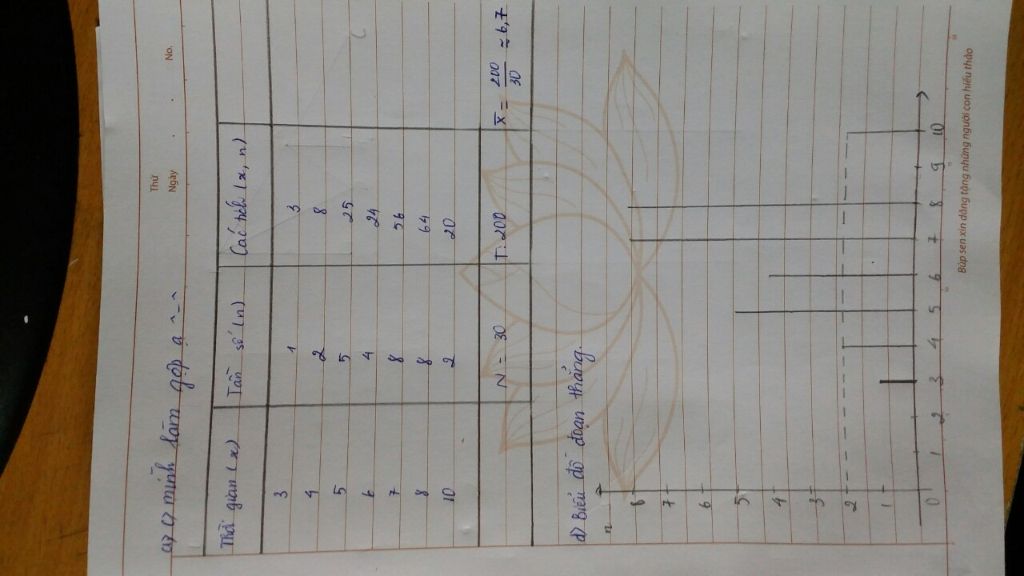 Thứ
Ngày . . No.
a) c) mình làm gộp ạ ^-^
Thời gian (x) Tần số (n) Các tích (x, n)
3 1 3
4 2 8
5 5 25
6 4 24
7 8 56
8 8 64
10 2 20
N = 30 T: 200 X̅ = 200/30 ≈ 6,7
d) Biểu đồ đoạn thẳng.
n
8
7
6
5
4
3
2
1
0 1 2 3 4 5 6 7 8 9 10
Búp sen xin dâng tặng những người con hiếu thảo